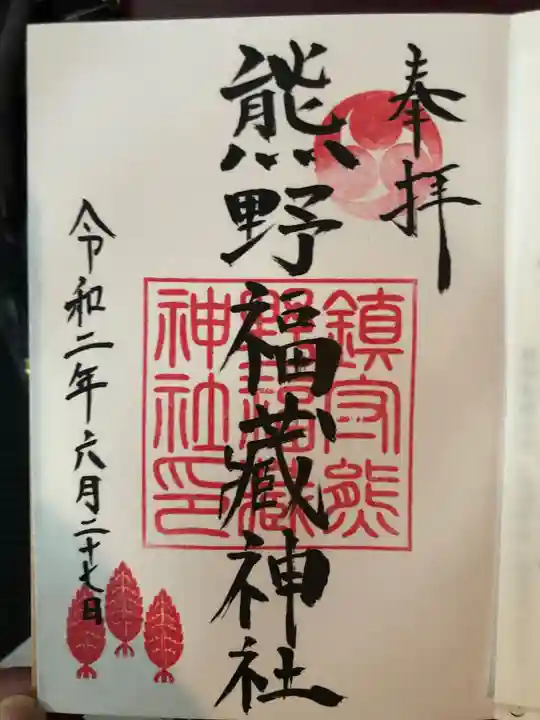 奉拝
熊野福蔵神社
鎮守熊
野福蔵
神社印
令和二年六月二十七日